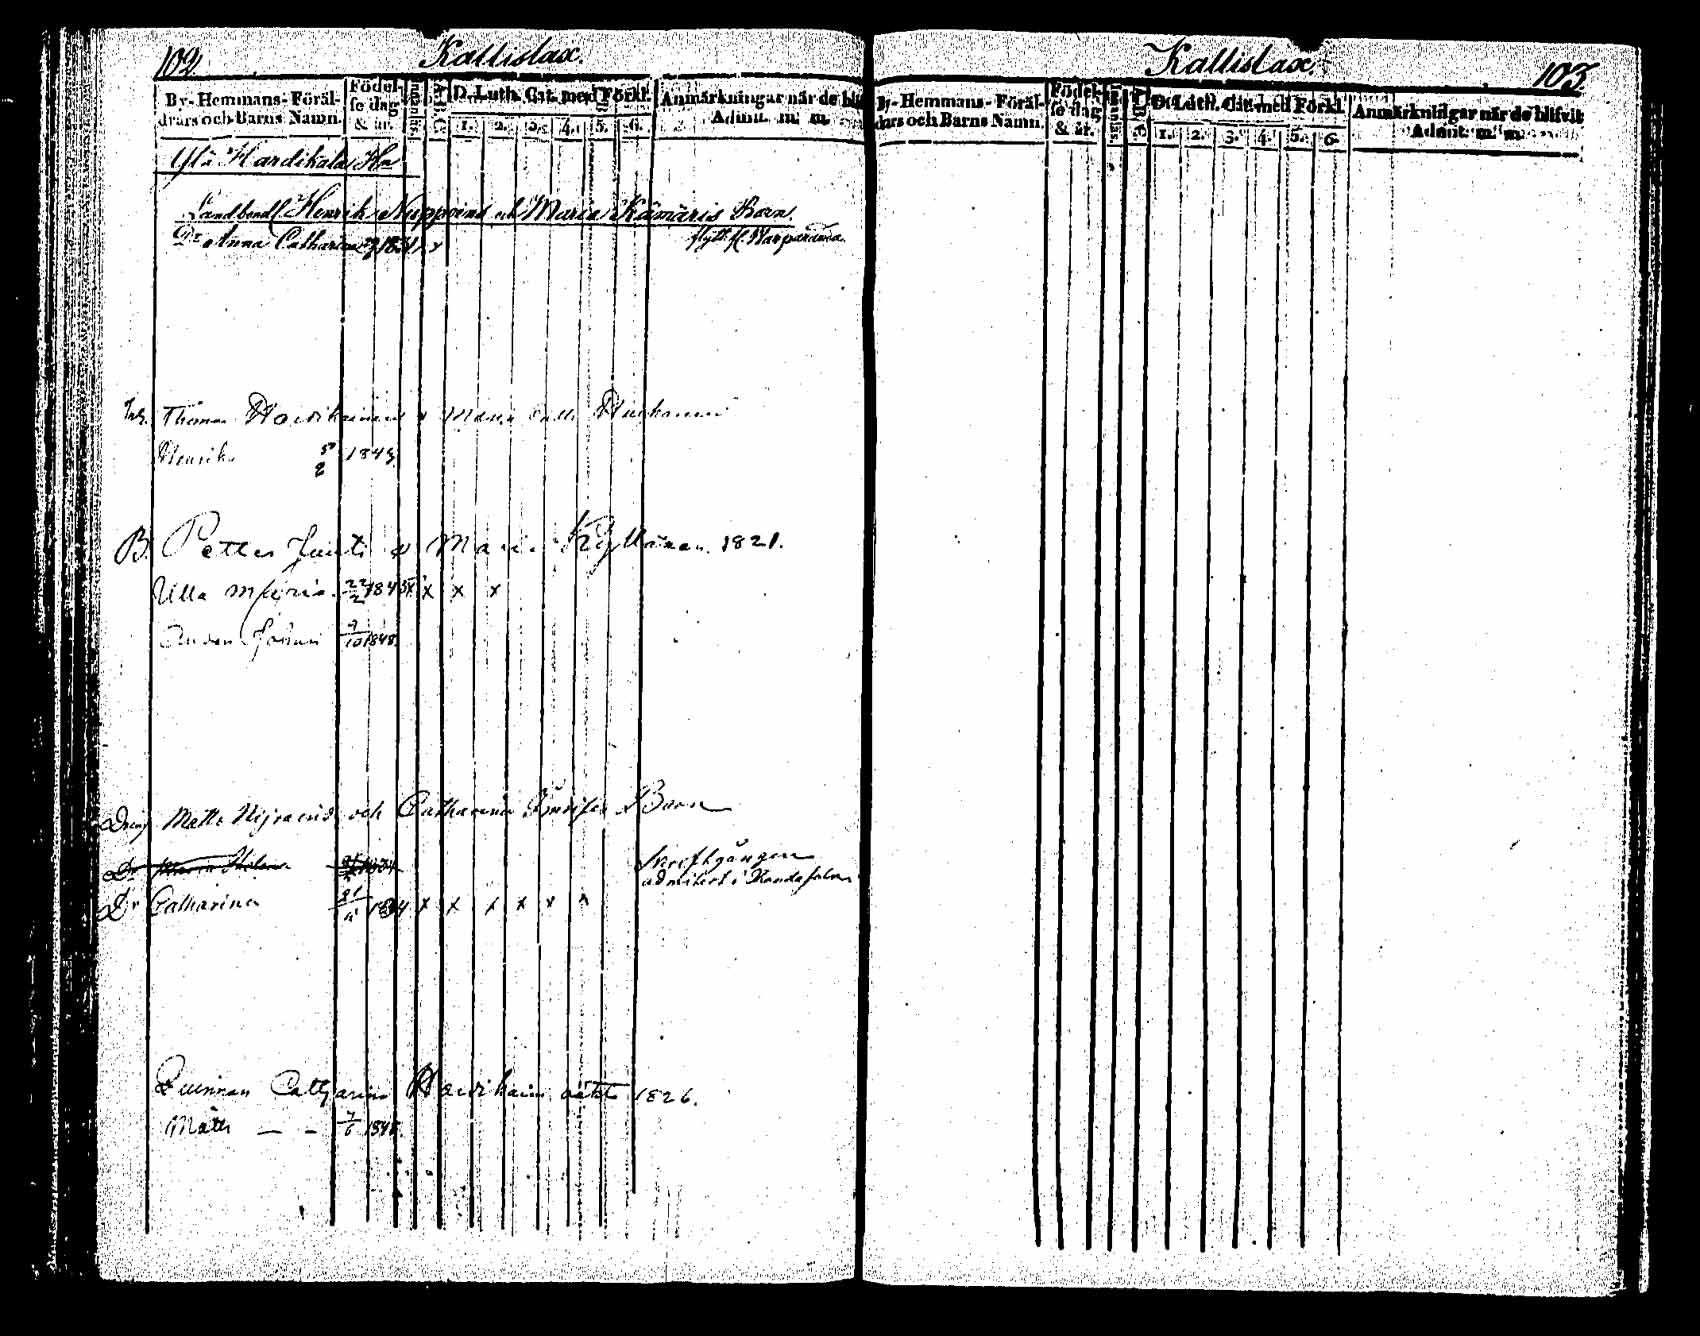 102
Kallislax.
By- Hemmans- Föräl-
drars och Barns Namn.
Födel-
se dag
& år.
Innanläs.
A.B.C.
D. Luth. Cat. med Förkl.
1. 2. 3. 4. 5. 6.
Anmärkningar när de bli
Admit. m. m.
Ylä Hardikala Hn
Landbond. Henrik Nuppoind och Maria Kämäris Barn.
Dr Anna Catharina 1831 x x
flytt. t. Warparanda
Thomas Hardikainen & Maria
Henrik 5/2 1849
B. Petter Junti & Maria Kyllönen 1821.
Ulla Maria 22/2 1845 x x x x
Anders Johan 9/10 1848.
Dreng Matts Nijraind och Catharina Barn
Dr Maria Helena
Skriftgången
admitterd i
Dr Catharina 21 1834 x x x x x x
Qvinnan Catharina Hardikain 1826.
Matts — — 7/6 1848.
Kallislax.
103
By- Hemmans- Föräl-
drars och Barns Namn.
Födel-
se dag
& år.
Innanläs.
A.B.C.
D. Luth. Cat. med Förkl.
1. 2. 3. 4. 5. 6.
Anmärkningar när de blifvit
Admit. m. m.